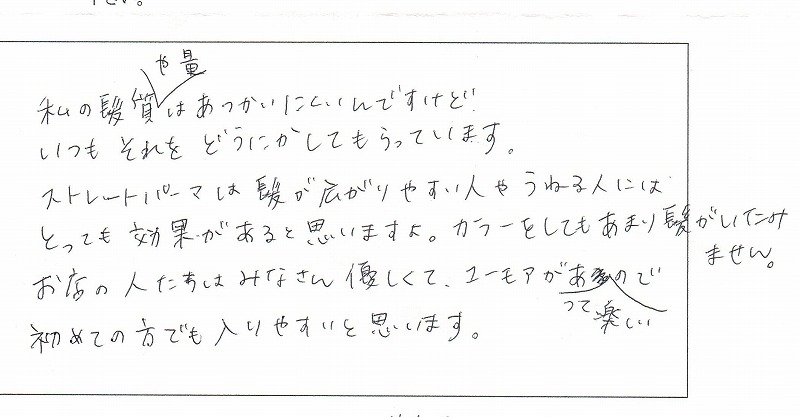 さい。
や量
私の髪質はあつかいにくいんですけど
いつもそれをどうにかしてもらっています。
ストレートパーマは髪が広がりやすい人やうねる人には
とっても効果があると思いますよ。カラーをしてもあまり髪がいたみ
ません。
お店の人たちはみなさん優しくて、ユーモアがあるので
って楽しい
初めての方でも入りやすいと思います。